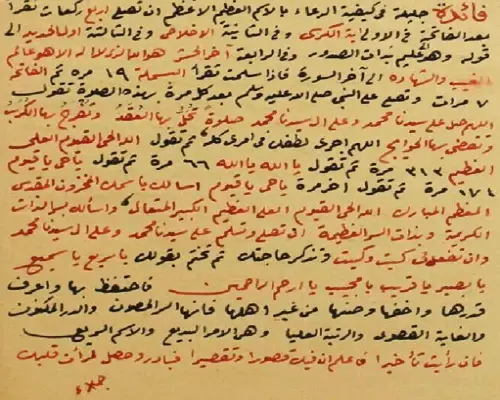 فائدة جليلة فى كيفية الدعاء بالاسم العظيم الاعظم ان تصلى اربع ركعات تقرأ
بعد الفاتحة فى الاولى اية الكرسى وفى الثانية الاخلاص وفى الثالثة اول الحديد الى
قوله وهو عليم بذات الصدور وفى الرابعة آخر الحشر هو الله الذى لا اله الا هو عالم
الغيب والشهادة الى آخر السورة فاذا سلمت تقرأ البسملة ١٩ مرة ثم الفاتحة
٧ مرات وتصلى على النبى صلى الله عليه وسلم بعد كل مرة بهذه الصلوة تقول
اللهم صل على سيدنا محمد وعلى ال سيدنا محمد صلوة تُحَلُّ بها العُقَدُ وتُفْرَجُ بها الكُرَبُ
وتقضى بها الحوايج اللهم اجرى لطفك فى امرى كله ثم تقول الله الحى القيوم العلى
العظيم ٣١٣ مرة ثم تقول يا الله يا الله ٦٦ مرة ثم تقول يا حى يا قيوم
مرة ثم تقول اخر مرة يا حى يا قيوم اسالك باسمك المخزون المقدس
المطهر المبارك الله الحى القيوم العلى العظيم الكبير المتعال واسألك بهذا الذات
الكريمة وبذات السر العظيمة ان تصلى وتسلم على سيدنا محمد وعلى ال سيدنا محمد
وان تفعل لى كيت وكيت وتذكر حاجتك ثم تختم بقولك يا سريع يا سميع
يا بصير يا قريب يا مجيب يا ارحم الراحمين فاحتفظ بها واعرف
قدرها واخفها وصنها من غير اهلها فانها السر المصون والدر المكنون
والغاية القصوى والرتبة العليا وهو الامر البديع والاسم السريع
فان رأيت تأخيرا فاعلم ان فيك قصورا وتقصيرا فبادر وحصل لمرآت قلبك
جلاء